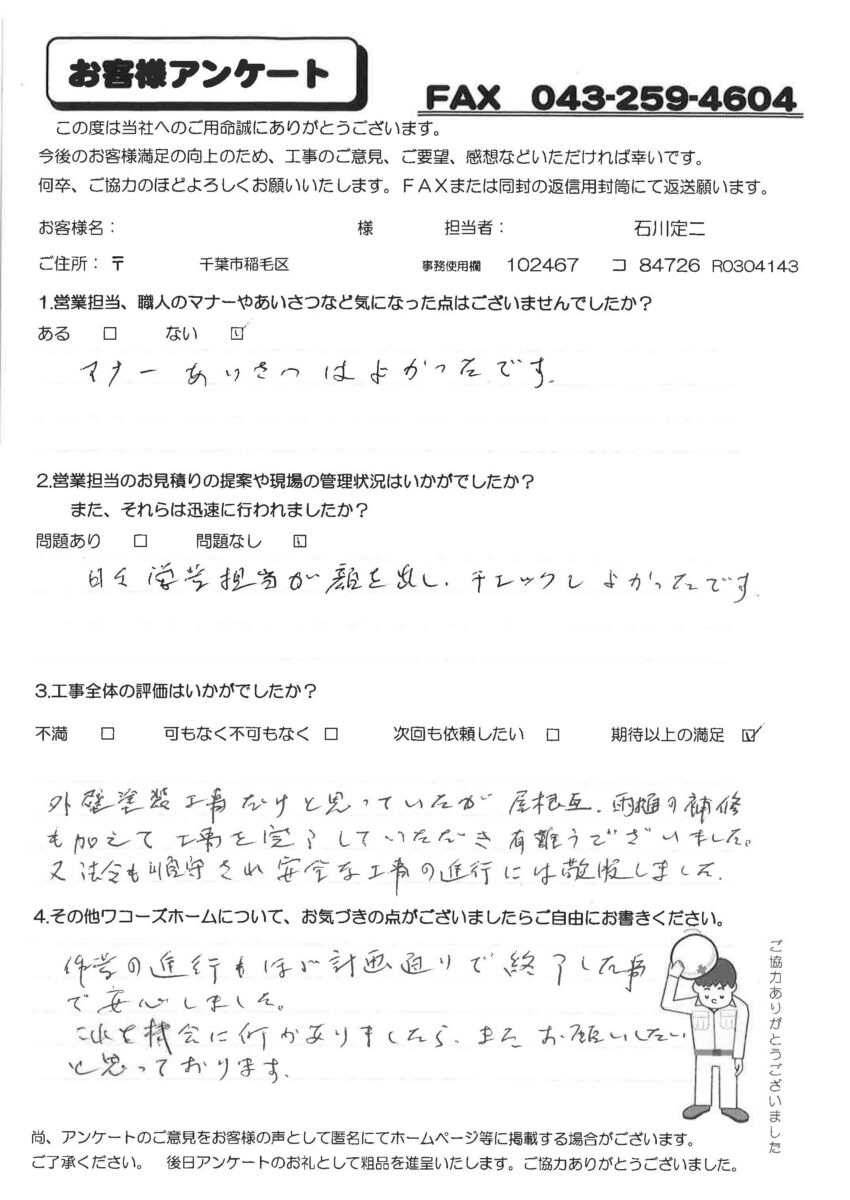 お客様アンケート
FAX 043-259-4604
この度は当社へのご用命誠にありがとうございます。
今後のお客様満足の向上のため、工事のご意見、ご要望、感想などいただければ幸いです。
何卒、ご協力のほどよろしくお願いいたします。FAXまたは同封の返信用封筒にて返送願います。
お客様名： 様 担当者： 石川定二
ご住所：〒 千葉市稲毛区 事務使用欄 102467 コ 84726 R0304143
1.営業担当、職人のマナーやあいさつなど気になった点はございませんでしたか？
ある □ ない ☑
マナーあいさつはよかったです。
2.営業担当のお見積りの提案や現場の管理状況はいかがでしたか？
また、それらは迅速に行われましたか？
問題あり □ 問題なし ☑
日々営業担当が顔を出し、チェックしよかったです。
3.工事全体の評価はいかがでしたか？
不満 □ 可もなく不可もなく □ 次回も依頼したい □ 期待以上の満足 ☑
外壁塗装工事だけと思っていたが屋根瓦、雨樋の補修
も加えて工事を完了していただき有難うございました。
又法令も順守され安全な工事の進行には敬服しました。
4.その他ワコーズホームについて、お気づきの点がございましたらご自由にお書きください。
作業の進行もほぼ計画通りで終了した事
で安心しました。
これを機会に何かありましたら、またお願いしたい
と思っております。
ご協力ありがとうございました
尚、アンケートのご意見をお客様の声として匿名にてホームページ等に掲載する場合がございます。
ご了承ください。 後日アンケートのお礼として粗品を進呈いたします。ご協力ありがとうございました。